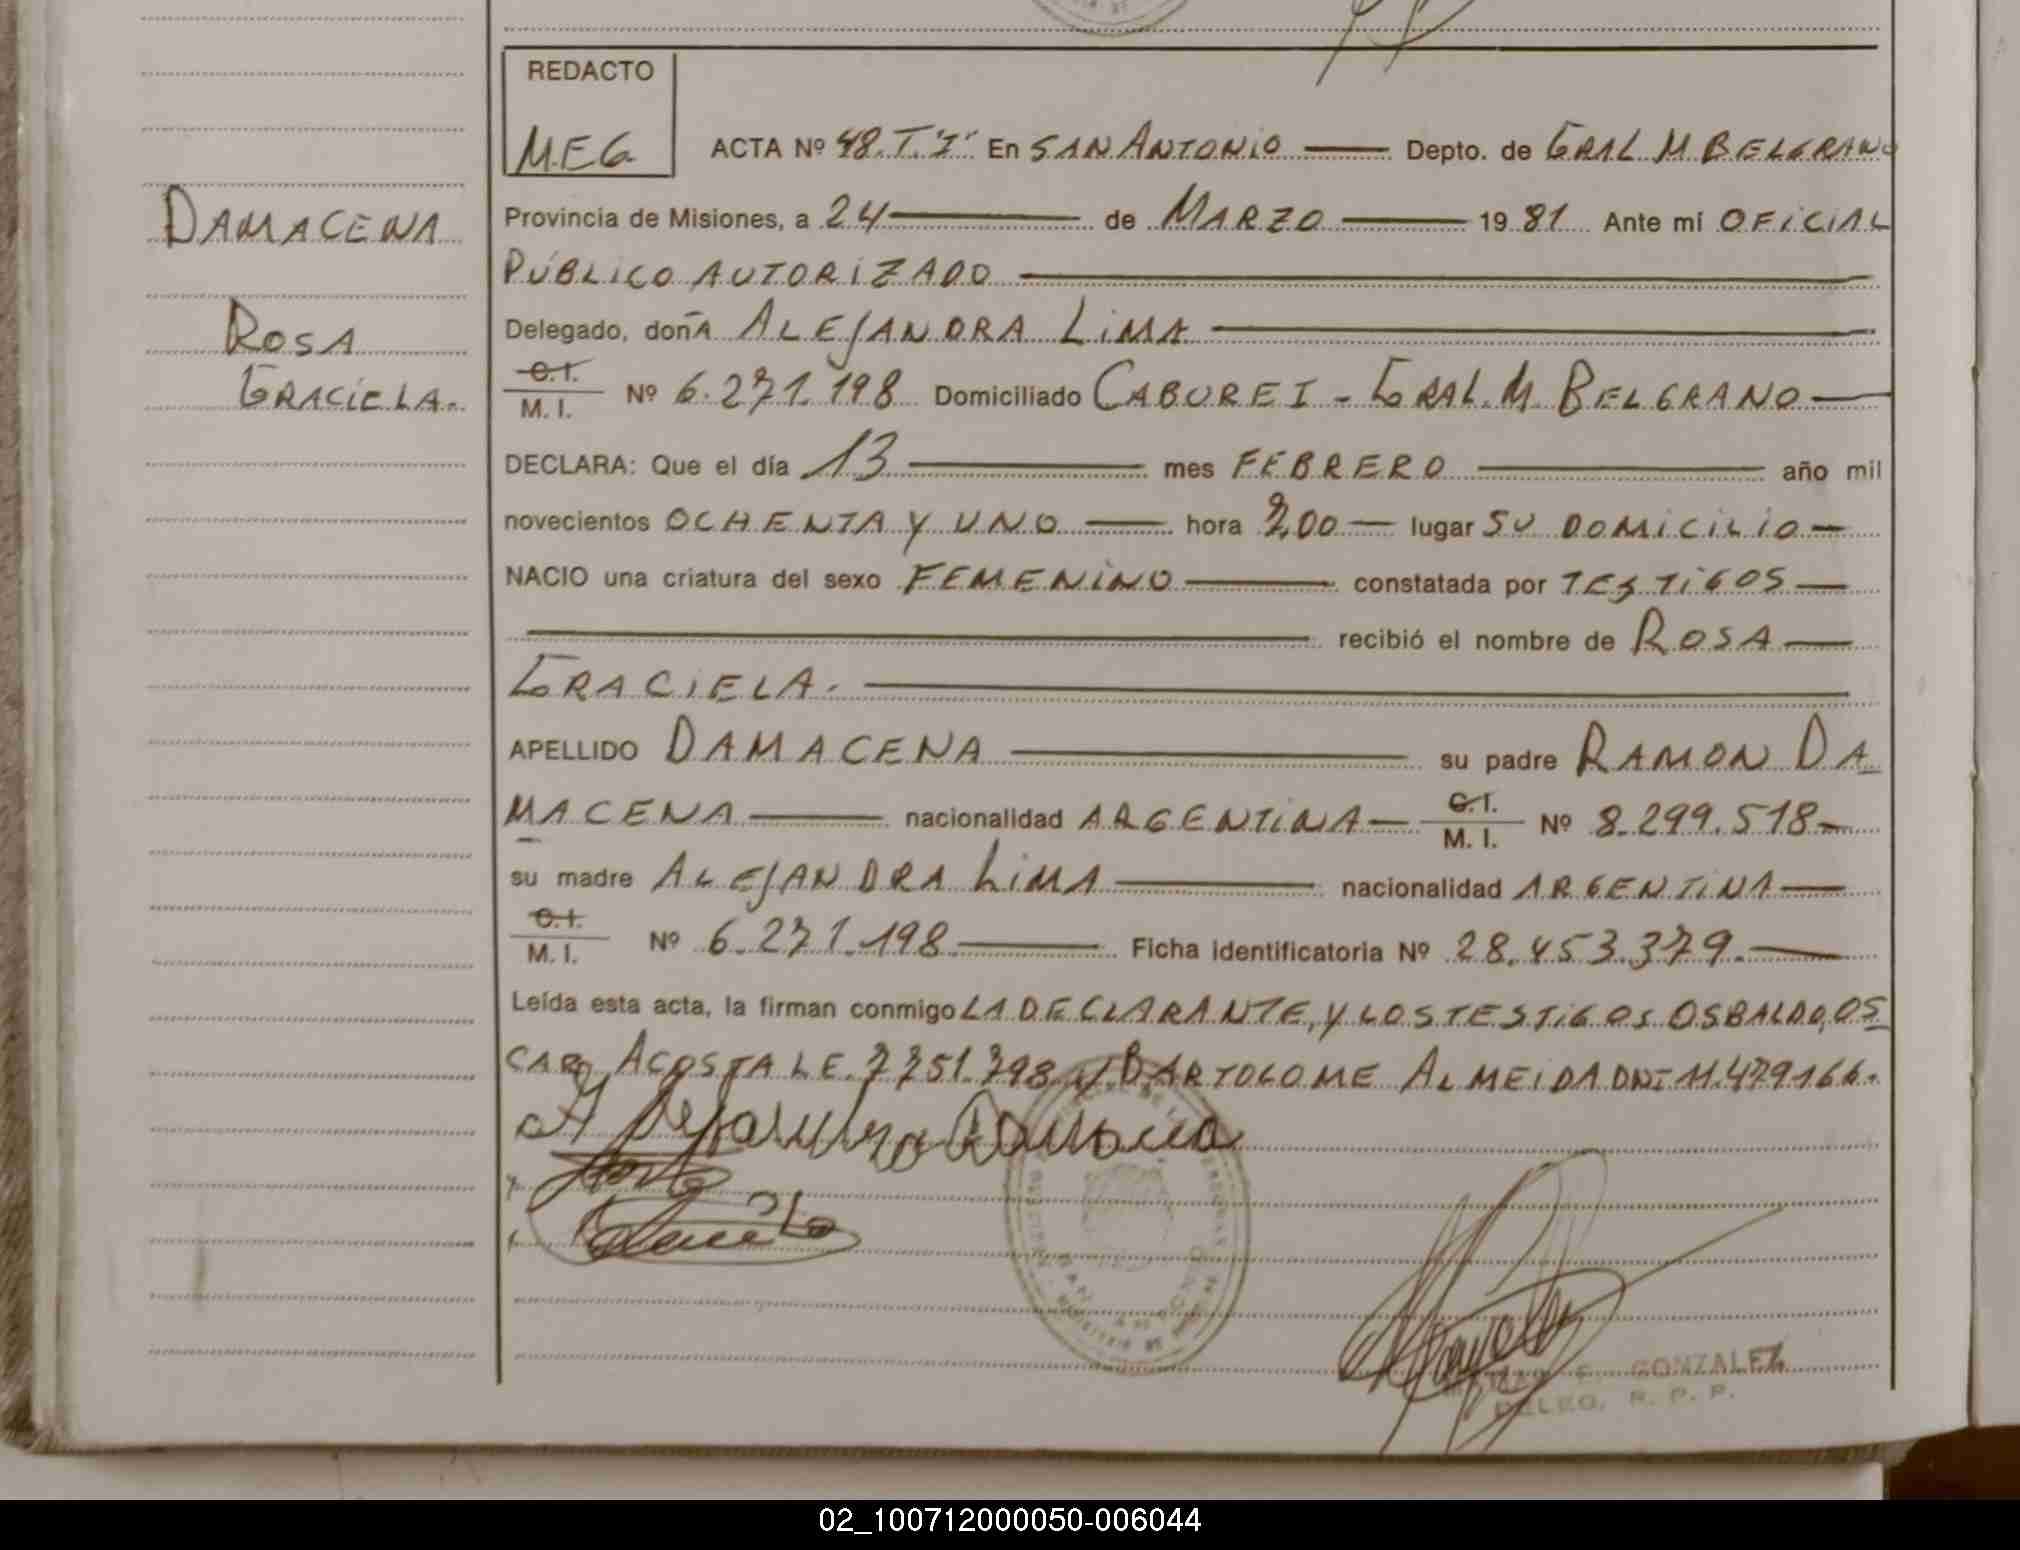 REDACTO
M.E.G.
ACTA Nº 48. T. "I" En SAN ANTONIO Depto. de GRAL M BELGRANO
DAMACENA
Provincia de Misiones, a 24 de MARZO 19 81 Ante mí OFICIAL
PÚBLICO AUTORIZADO
ROSA
Delegado, doñA ALEJANDRA LIMA
GRACIELA.
C.I.
M. I. Nº 6.271.198 Domiciliado CABUREI - GRAL. M. BELGRANO
DECLARA: Que el día 13 mes FEBRERO año mil
novecientos OCHENTA Y UNO hora 2,00 lugar SU DOMICILIO
NACIO una criatura del sexo FEMENINO constatada por TESTIGOS
recibió el nombre de ROSA
GRACIELA.
APELLIDO DAMACENA su padre RAMON DA
MACENA nacionalidad ARGENTINA C.I. M. I. Nº 8.299.518
su madre ALEJANDRA LIMA nacionalidad ARGENTINA
C.I.
M. I. Nº 6.271.198 Ficha identificatoria Nº 28.453.379.
Leída esta acta, la firman conmigo LA DECLARANTE, Y LOS TESTIGOS OSBALDO, OS
CAR ACOSTA L E. 7751.798 y BARTOLOME ALMEIDA DNI 11.479166.
GONZALEZ
DELEG. R. P. P.
02_100712000050-006044